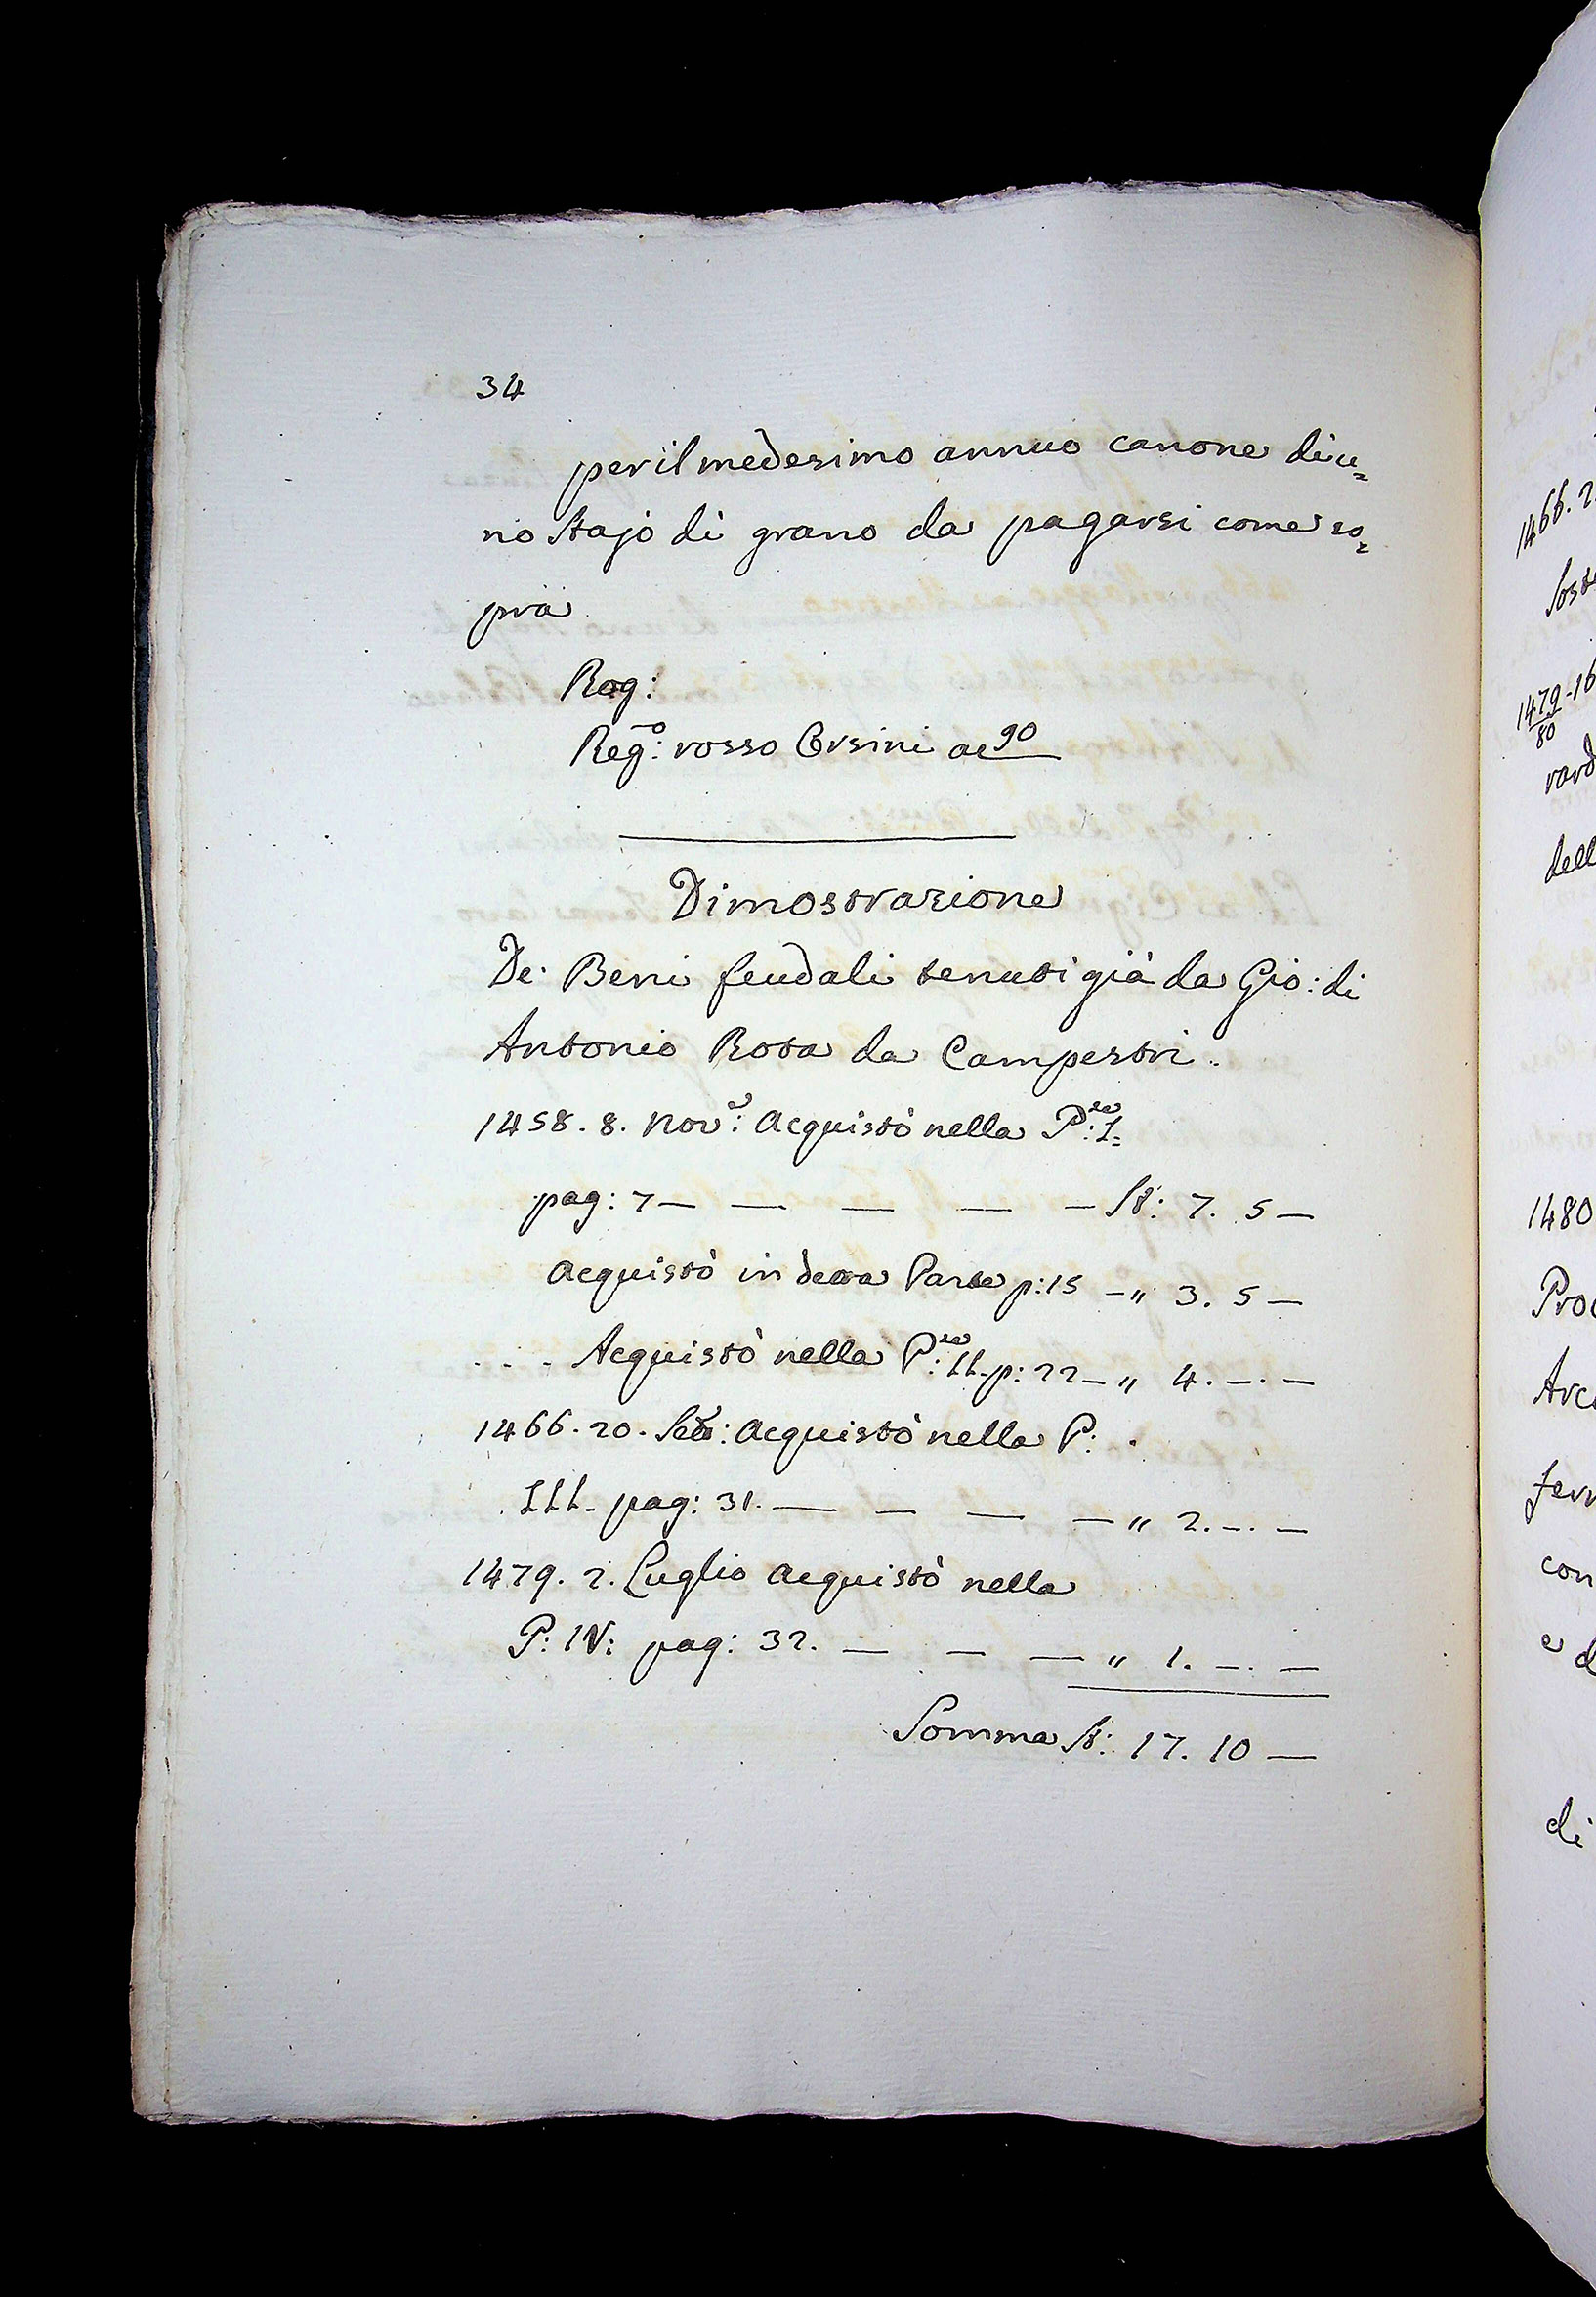 34
per il medesimo annuo canone di u=
no Stajo di grano da pagarsi come so=
pra
Rog:
Reg:o rosso Orsini ac 90
Dimostrazione
De' Beni feudali tenuti già da Gio: di
Antonio Rota da Campestri.
1458. 8. Nov:e Acquistò nella P:te I.
pag: 7 — — — — — St: 7. 5 —
Acquistò in detta Parte p: 15 — „ 3. 5 —
. . . Acquistò nella P:te II. p: 22 — „ 4. —. —
1466. 20. Set: Acquistò nella P:
III. pag: 31. — — — — „ 2. —. —
1479. 2. Luglio Acquistò nella
P: IV: pag: 32. — — — „ 1. —. —
Somma St: 17. 10 —
1466. 2
1479 - 16
80
dell
1480
Pro
con
e d
di